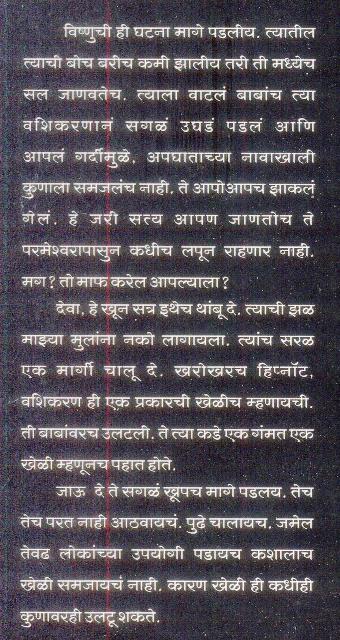 विष्णुची ही घटना मागे पडलीय. त्यातील
त्याची बोच बरीच कमी झालीय तरी ती मध्येच
सल जाणवतेच. त्याला वाटलं बाबांच त्या
वशिकरणानं सगळं उघडं पडलं आणि
आपलं गर्दीमुळे, अपघाताच्या नावाखाली
कुणाला समजलंच नाही. ते आपोआपच झाकलं
गेलं. हे जरी सत्य आपण जाणतोच ते
परमेश्वरापासुन कधीच लपून राहणार नाही.
मग? तो माफ करेल आपल्याला?
देवा, हे खून सत्र इथेच थांबू दे. त्याची झळ
माझ्या मुलांना नको लागायला. त्यांच सरळ
एक मार्गी चालू दे. खरोखरच हिप्नॉट,
वशिकरण ही एक प्रकारची खेळीच म्हणायची.
ती बाबांवरच उलटली. ते त्या कडे एक गंमत एक
खेळी म्हणूनच पहात होते.
जाऊ दे ते सगळं खूपच मागे पडलय. तेच
तेच परत नाही आठवायचं. पुढे चालायच. जमेल
तेवढ लोकांच्या उपयोगी पडायच कशालाच
खेळी समजायचं नाही. कारण खेळी ही कधीही
कुणावरही उलटू शकते.